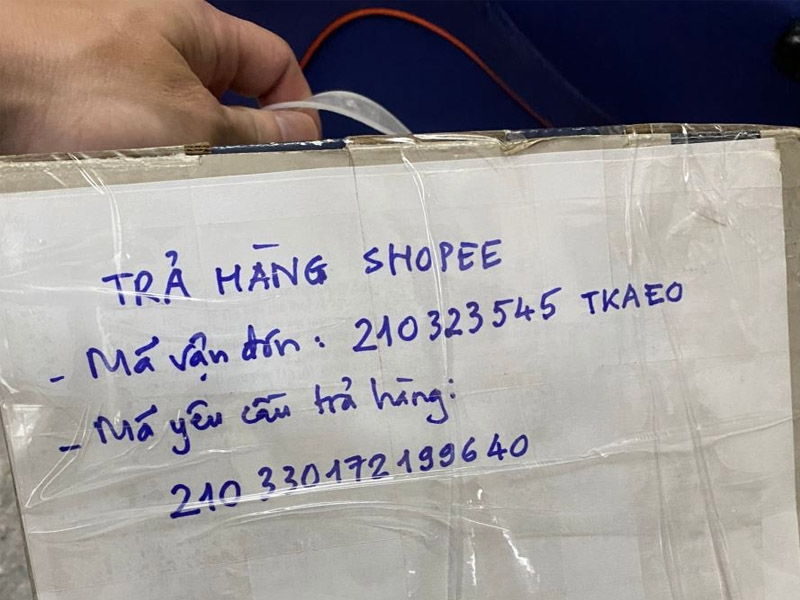 TRẢ HÀNG SHOPEE
- Mã vận đơn: 210323545 TKAEO
- Mã yêu cầu trả hàng:
210330172199640